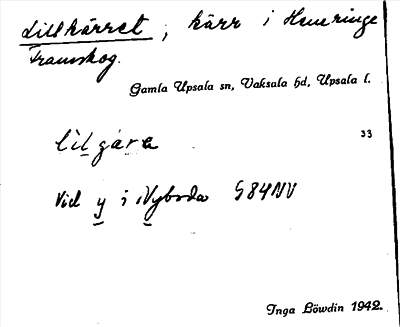 Lillkärret, kärr i Henringe
Framskog.
Gamla Upsala sn, Vaksala hd, Upsala l.
33
Vid y i Nyboda 984NV
Inga Löwdin 1942.